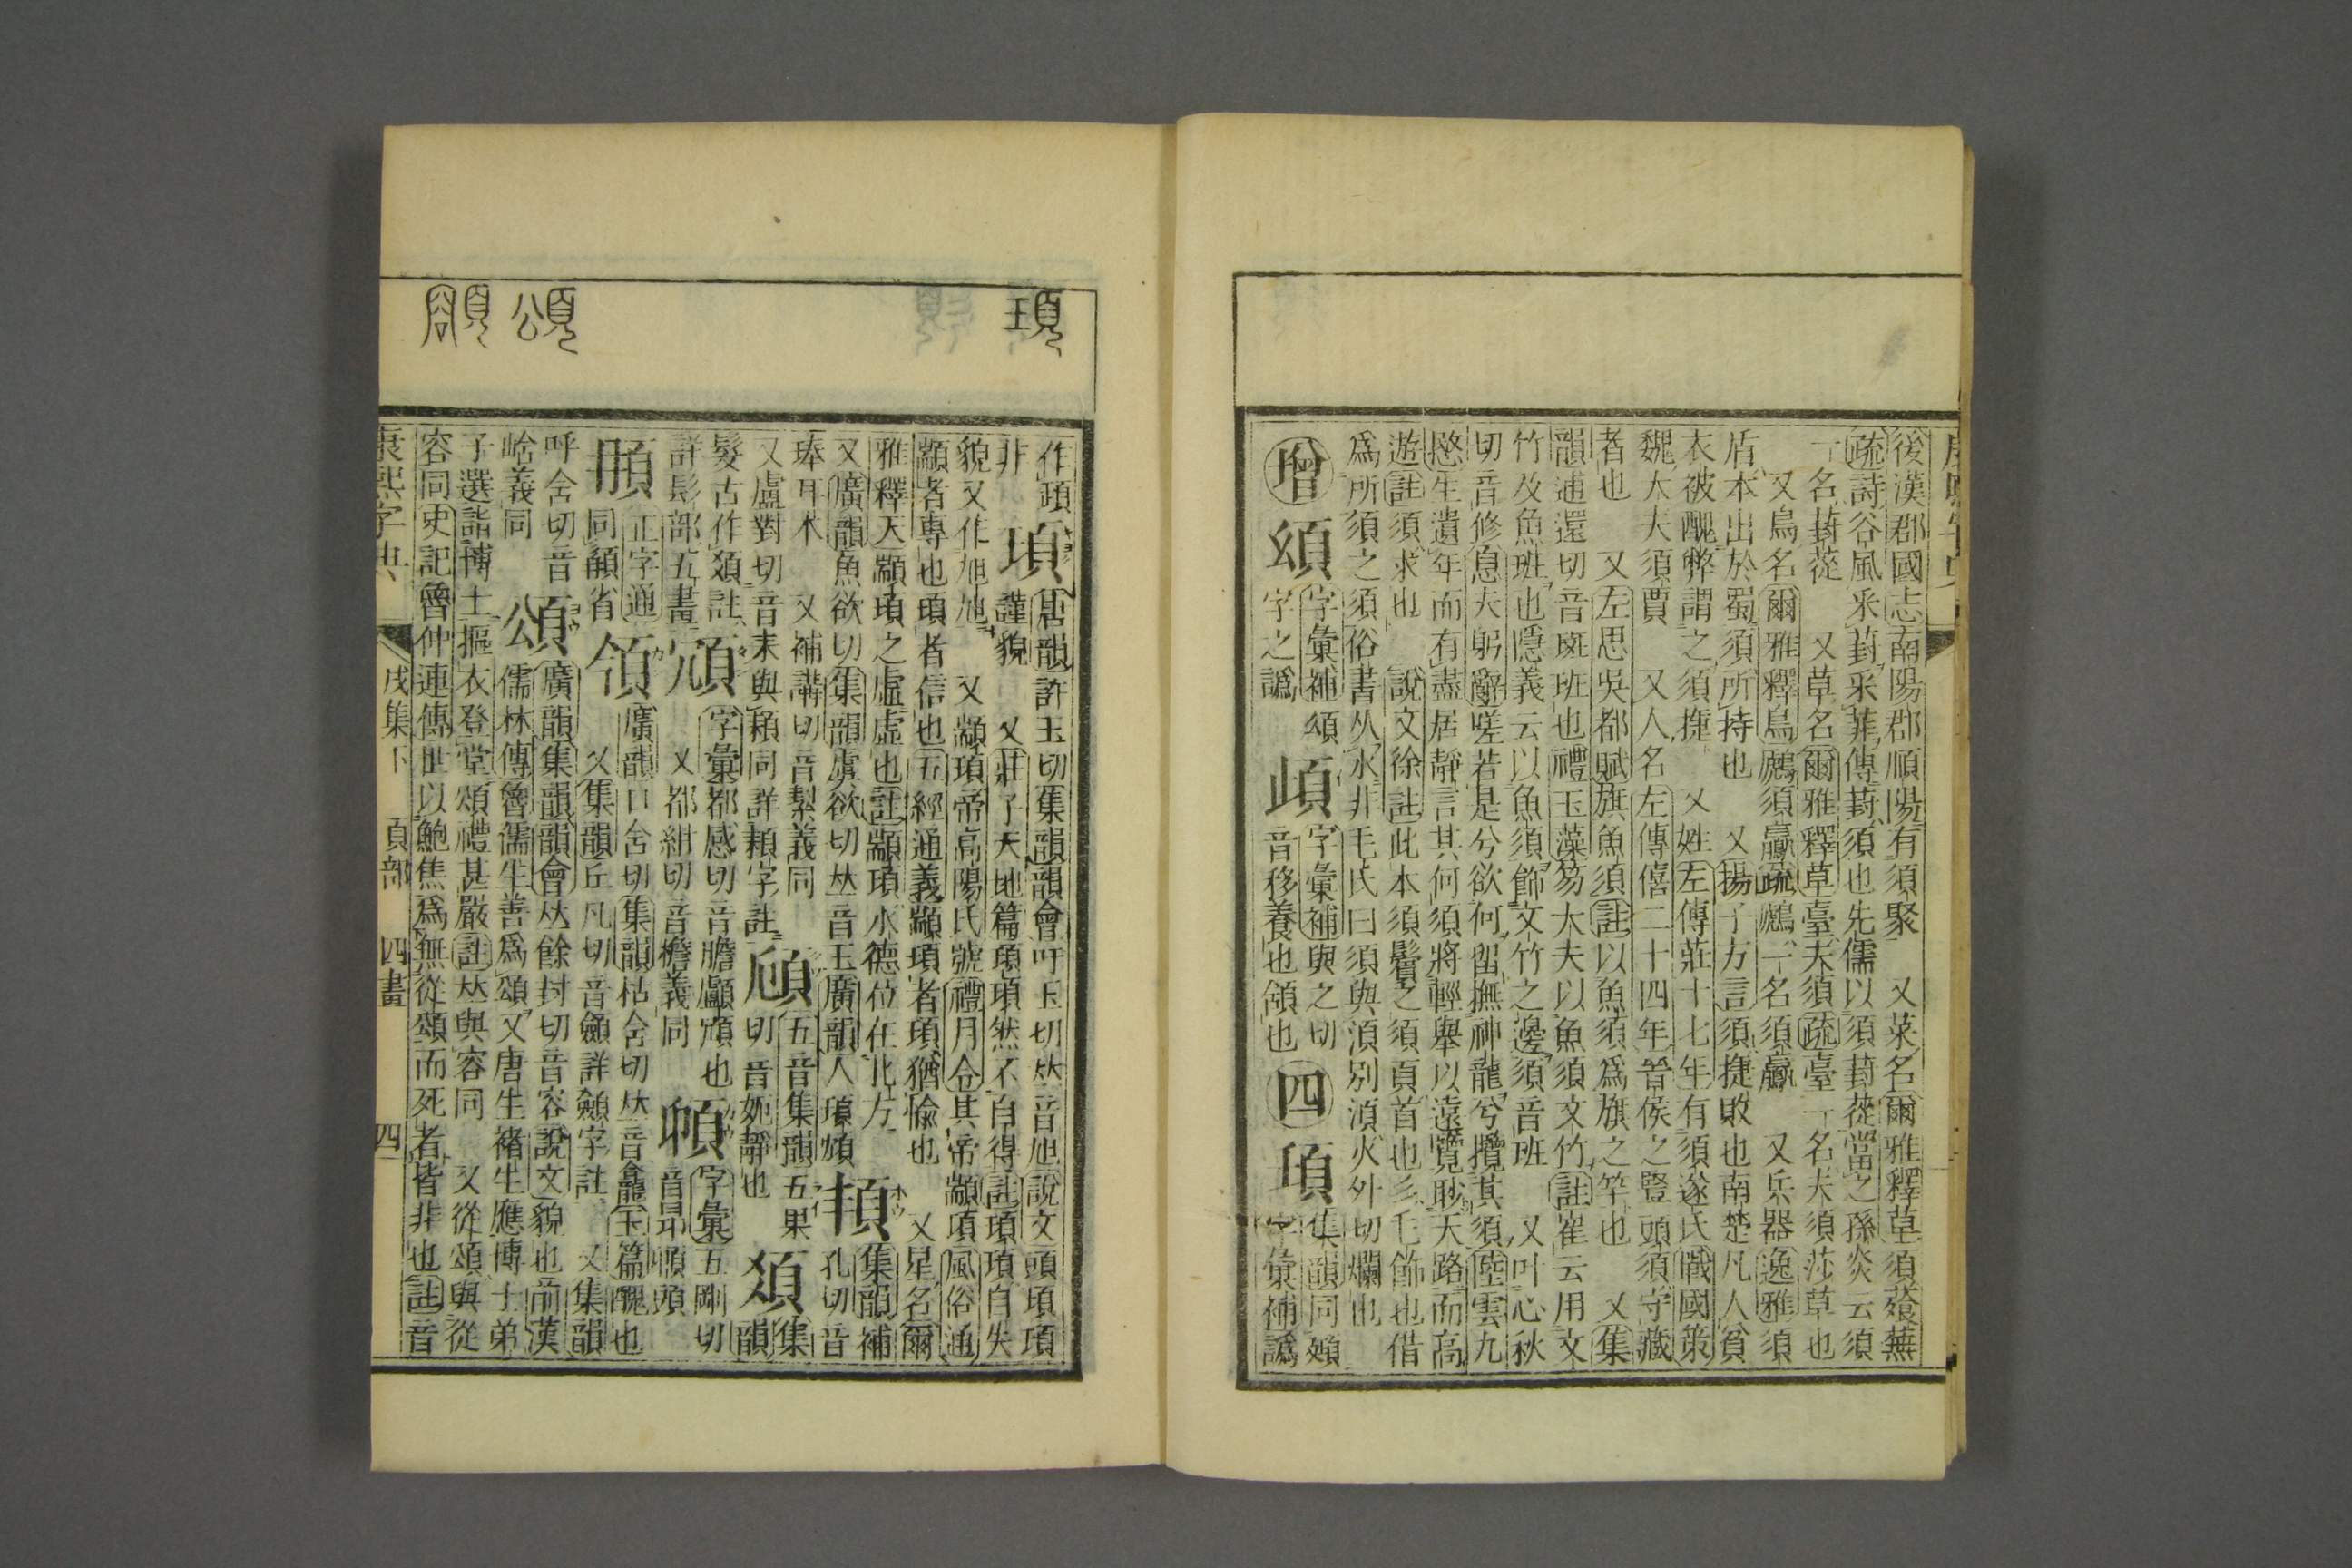 後漢郡國志南陽郡順陽有須聚　又菜名爾雅釋草須薞蕪
疏詩谷風采葑采菲傳葑須也先儒以須葑蓯當之孫炎云須
一名葑蓯　又草名爾雅釋草臺夫須疏臺一名夫須莎草也
又鳥名爾雅釋鳥鸍須鸁疏鸍一名須鸁　又兵器逸雅須
盾本出於蜀須所持也　又揚子方言須捷敗也南楚凡人貧
衣被醜弊謂之須捷　又姓左傳莊十七年有須遂氏戰國策
魏大夫須賈　又人名左傳僖二十四年晉侯之豎頭須守藏
者也　又左思吳都賦旗魚須註以魚須爲旗之竿也　又集
韻逋還切音斑班也禮玉藻笏大夫以魚須文竹註崔云用文
竹及魚班也隱義云以魚須飾文竹之邊須音班　又叶心秋
切音修息夫躬辭嗟若是兮欲何留撫神龍兮攬其須陸雲九
愍生遺年而有盡居靜言其何須將輕舉以遠覽眇天路而高
遊註須求也　說文徐註此本須鬢之須頁首也彡毛飾也借
爲所須之須俗書从水非毛氏曰須與湏別湏火外切爛也
增　頌　字彙補頌字之譌　字彙補與之切音移養也頷也　四　頊　集韻同頫字彙補譌
作頙非　頊　唐韻許玉切集韻韻會吁玉切𠀤音旭說文頭頊頊
謹貌　又莊子天地篇頊頊然不自得註頊頊自失
貌又作旭旭　又顓頊帝高陽氏號禮月令其帝顓頊風俗通
顓者專也頊者信也五經通義顓頊者頊猶愉也　又星名爾
雅釋天顓頊之虛虛也註顓頊水德位在北方　集韻補
又廣韻魚欲切集韻虞欲切𠀤音玉廣韻人頊頰　孔切音
琫耳本　又補講切音㓒義同　五音集韻五果切音妮靜也
又盧對切音耒與纇同詳纇字註　集韻
髮古作頦註詳髟部五畫　字彙都感切音膽顱頑也　又都紺切音檐義同　字彙五剛切音昂頭
正字通同額省　廣韻口含切集韻枯含切𠀤音龕玉篇醜也
又集韻丘凡切音顩詳顩字註　又集韻
呼含切音岭義同　頌　廣韻集韻韻會𠀤餘封切音容說文貌也前漢
儒林傳魯儒生善爲頌又唐生褚生應博士弟
子選詣博士摳衣登堂頌禮甚嚴註𠀤與容同　又從頌與從
容同史記魯仲連傳世以鮑焦爲無從頌而死者皆非也註音
康熙字典　戌集下　頁部　四畫　四